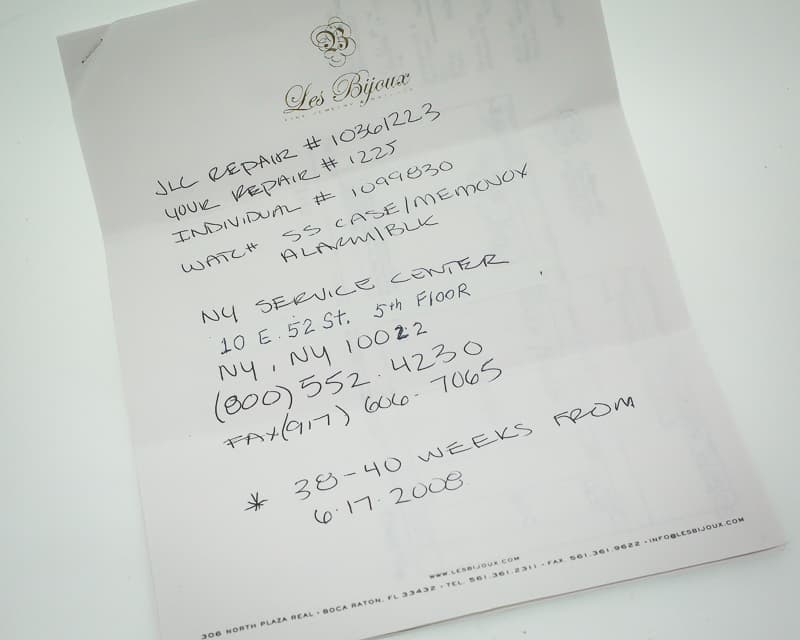 Les Bijoux
JLC REPAIR # 10361223
YOUR REPAIR # 1225
INDIVIDUAL # 1099830
WATCH SS CASE/MEMOVOX
ALARM/BLK
NY SERVICE CENTER
10 E. 52 St. 5th FlOOR
NY, NY 10022
(800) 552.4230
FAX(917) 606-7065
* 38-40 WEEKS FROM
6.17.2008
WWW.LESBIJOUX.COM
306 NORTH PLAZA REAL • BOCA RATON, FL 33432 • TEL. 561.361.2311 • FAX. 561.361.9622 • INFO@LESBIJOUX.COM